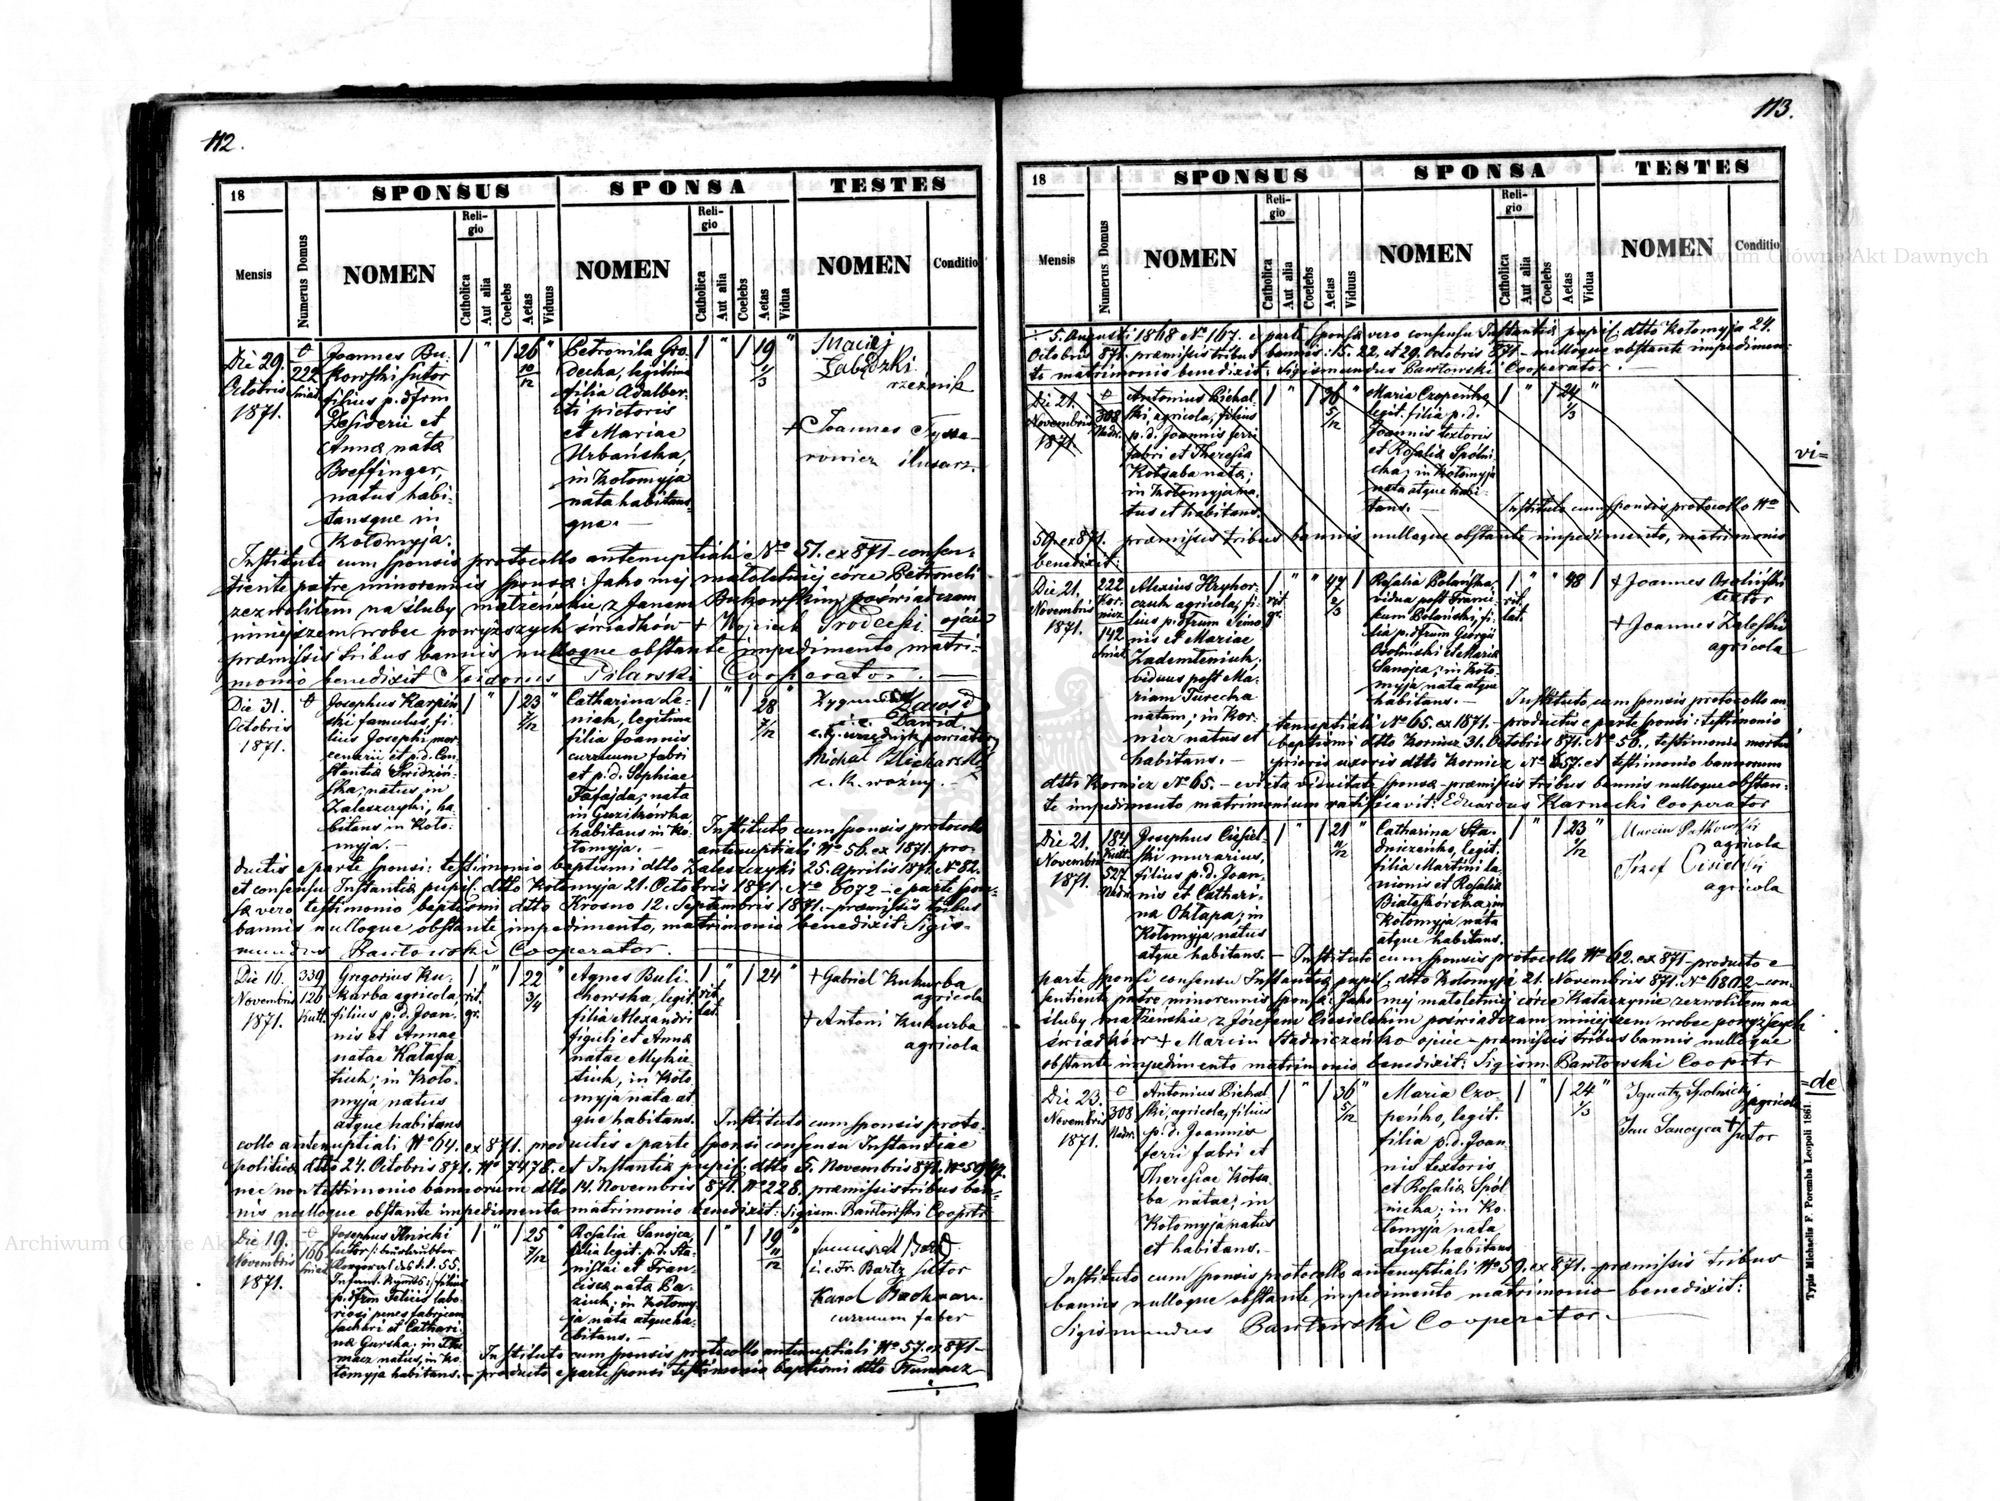 112.
18
SPONSUS
SPONSA
TESTES
Mensis
Numerus Domus
NOMEN
Religio
Catholica
Aut alia
Coelebs
Aetas
Viduus
NOMEN
Religio
Catholica
Aut alia
Coelebs
Aetas
Vidua
NOMEN
Conditio
Die 29.
Octobris
1871.
222
Joannes Bu-
kowski sutor
filius p. dfrm
Desiderii et
Annæ natæ
Boeffinger,
natus habi-
tansque in
Kołomyja.
26
10/12
Petronila Gro-
decka, legitima
filia Adalber-
ti pictoris
et Mariae
Urbańska,
in Kołomyja
nata habitans-
que.
19
1/3
Maciej
Zabędzki
rzeźnik
+ Joannes Tyssa-
rowicz slusarz.
Instituto cum sponsis protocollo antenuptiali No 51. ex 871 consen-
tiente patre minorennis sponsæ: Jako mej małoletniej córce Petroneli
zezwoliłem na śluby małżeńskie z Janem Bukowskim poświadczam
niniejszem wobec powyższych świadków + Wojciech Grodecki ojciec
præmissis tribus bannis nulloque obstante impedimento matri-
monio benedixit Isidorus Pilarski Cooperator.
Die 31.
Octobris
1871.
Josephus Karpiń-
ski famulus, fi-
lius Josephi mer-
cenarii et p.d. Con-
stantiæ Swidziń-
ska, natus in
Zaleszczyki, ha-
bitans in Koło-
myja.
23
7/12
Catharina Le-
niak, legitima
filia Joannis
curruum fabri
et p.d. Sophiae
Fafajda, nata
in Guzikówka,
habitans in Ko-
łomyja.
28
7/12
Zygmunt Dawid
i.e. Dawid
c.k. urzędnik powiatowy
Michał Piekarski
c. k. woźny.
Instituto cum sponsis protocollo
antenuptiali No 56. ex 1871. pro-
ductis e parte sponsi: testimonio baptismi dtto Zaleszczyki 25. Aprilis 1871. No 82.
et consensu Instantiæ pupil. dtto Kołomyja 21. Octobris 1871. No 6072 – e parte spon-
sæ vero testimonio baptismi dtto Krosno 12. Septembris 1871. – præmissis tribus
bannis nulloque obstante impedimento, matrimonio benedixit Sigis-
mundus Bawłowski Cooperator.
Die 16.
Novembris
1871.
339
126
Kutt.
Gregorius Ku-
kurba agricola,
filius p.d. Joan-
nis et Annae
natae Kałafa-
tiuk; in Koło-
myja natus
atque habitans
rit.
gr.
22
3/4
Agnes Buli-
chowska, legit.
filia Alexandri
figuli et Annæ
natae Mykie-
tiuk, in Koło-
myja nata at-
que habitans.
rit.
lat.
24
+ Gabriel Kukurba
agricola
+ Antoni Kukurba
agricola
Instituto cum sponsis proto-
collo antenuptiali No 64. ex 871. productis e parte sponsi consensu Instantiae
politicæ dtto 24. Octobris 871. No 7478. et Instantiæ pupil. dtto 5. Novembris 871.
nec non testimonio bannorum dtto 14. Novembris 871. No 228. præmissis tribus ban-
nis nulloque obstante impedimento matrimonio benedixit: Sigism. Bawłowski Cooprtr
Die 19.
Novembris
1871.
166
Josephus Ilnicki
sutor
p. dfrm Felicis labo-
riosi penes fabricam
et Cathari-
næ Gurska, in Tłu-
macz natus, in Ko-
łomyja habitans.
25
7/12
Rosalia Sanojca,
filia legit. p.d. Sta-
nislai et Fran-
ciscæ nata Ba-
ziuk; in Kołomy-
ja nata atque ha-
bitans.
19
11/12
i.e. Fr. Bartz sutor
Karol Bachman
curruum faber
Instituto cum sponsis protocollo antenuptiali No 57. ex 871 –
producto e parte sponsi testimonio baptismi dtto Tłumacz
113.
18
SPONSUS
SPONSA
TESTES
Mensis
Numerus Domus
NOMEN
Religio
Catholica
Aut alia
Coelebs
Aetas
Viduus
NOMEN
Religio
Catholica
Aut alia
Coelebs
Aetas
Vidua
NOMEN
Conditio
5. Augusti 1868 No 167. e parte sponsæ vero consensu Instantiæ pupil. dtto Kołomyja 24.
Octobris 871. præmissis tribus bannis: 15. 22. et 29. Octobris 871 – nulloque obstante impedimen-
to matrimonio benedixit: Sigismundus Bawłowski Cooperator.
Die 21.
Novembris
1871.
308
Nadw.
Antonius Piechal-
ski, agricola, filius
p.d. Joannis ferri
fabri et Theresiæ
Kotsaba natæ;
in Kołomyja na-
tus et habitans.
36
5/12
Maria Czopeńko,
legit. filia p.d.
Joannis textoris
et Rosaliæ Spólni-
cka; in Kołomyja
nata atque habi-
tans.
24
1/3
vi=
Instituto cum sponsis protocollo No
59. ex 871. præmissis tribus bannis nulloque obstante impedimento, matrimonio
benedixit:
Die 21.
Novembris
1871.
222
Kor-
nicz
142
Alexius Hryhor-
czuk agricola, fi-
lius p. dfrum Simo-
nis et Mariae
Zademleniuk,
viduus post Ma-
riam Turecka
natam; in Kor-
nicz natus et
habitans.
rit.
gr.
47
2/3
Rosalia Bolańska,
vidua post Franci-
scum Bolański, fi-
lia p. dfrum Georgii
Osoliński et Mariæ
Sanojca; in Koło-
myja nata atque
habitans.
rit.
lat.
48
+ Joannes Osoliński
textor
+ Joannes Zaleski
agricola
Instituto cum sponsis protocollo an-
tenuptiali No 65. ex 1871. – productis e parte sponsi: testimonio
baptismi dtto Kornicz 31. Octobris 871. No 56., testimonio mortis
prioris uxoris dtto Kornicz No 57. et testimonio bannorum
dtto Kornicz No 65. – evicta viduitate sponsæ – præmissis tribus bannis nulloque obstan-
te impedimento matrimonium ratificavit: Eduardus Karnecki Cooperator
Die 21.
Novembris
1871.
184
Kutt.
527
Nadw.
Josephus Ciesiel-
ski murarius,
filius p.d. Joan-
nis et Cathari-
na Okłapa; in
Kołomyja natus
atque habitans.
21
11/12
Catharina Sta-
dniczeńko, legit.
filia Martini la-
nionis et Rosaliæ
Białoskórska; in
Kołomyja nata
atque habitans.
23
1/12
Marcin Patkowski
agricola
Józef Ciesielski
agricola
Instituto cum sponsis protocollo No 62. ex 871 – producto e
parte sponsi consensu Instantiæ pupil. dtto Kołomyja 21. Novembris 871. No 6802 – con-
sentiente patre minorennis sponsæ: Jako mej małoletniej córce Katarzynie zezwoliłem na
śluby małżeńskie z Józefem Ciesielskim poświadczam niniejszem wobec powyższych
świadków + Marcin Stadniczeńko ojciec – præmissis tribus bannis nulloque
obstante impedimento matrimonio benedixit: Sigism. Bawłowski Cooprtr
Die 23.
Novembris
1871.
308
Nadw.
Antonius Piechal-
ski, agricola, filius
p.d. Joannis
ferri fabri et
Theresiae Kotsa-
ba natæ; in
Kołomyja natus
et habitans.
36
5/12
Maria Czo-
peńko, legit.
filia p.d. Joan-
nis textoris
et Rosaliæ Spól-
nicka; in Ko-
łomyja nata
atque habitans
24
1/3
=de
Ignatz Spolnicki
agricola
Jan Sanojca +
sutor
Instituto cum sponsis protocollo antenuptiali No 59. ex 871. – præmissis tribus
bannis nulloque obstante impedimento matrimonio – benedixit:
Sigismundus Bawłowski Cooperator.
Typis Michaelis F. Poremba Leopoli 1861.
Archiwum Główne Akt Dawnych
Archiwum Główne Ak